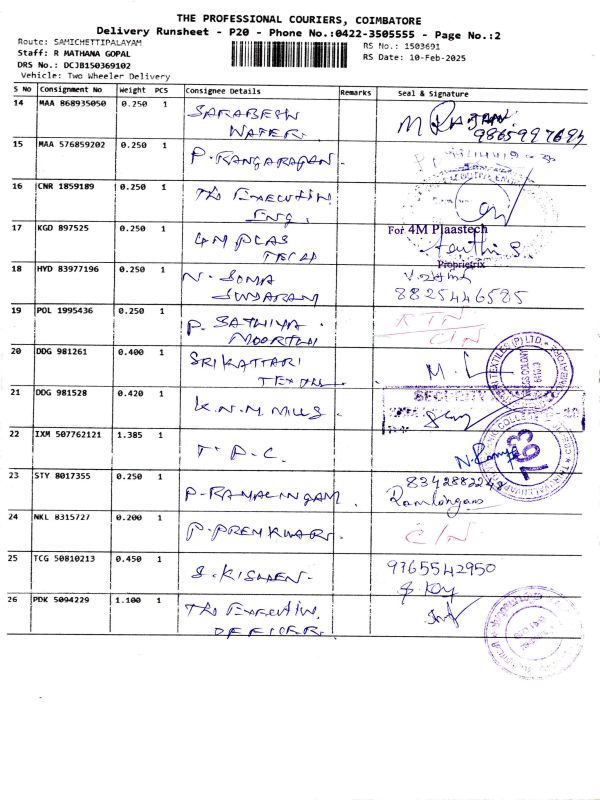 THE PROFESSIONAL COURIERS, COIMBATORE
Delivery Runsheet - P20 - Phone No.:0422-3505555 - Page No.:2
Route: SAMICHETTIPALAYAM
RS No.: 1503691
Staff: R MATHANA GOPAL
RS Date: 10-Feb-2025
DRS No.: DCJB150369102
Vehicle: Two Wheeler Delivery
S No Consignment No Weight PCS Consignee Details Remarks Seal & Signature
14 MAA 868935050 0.250 1 SARABESH
WATER.
M RAJAN.
15 MAA 576859202 0.250 1 P. RANGARAJAN.
16 CNR 1859189 0.250 1 The Executive
Eng.
17 KGD 897525 0.250 1 4M PLAS
TECH
For 4M Plaastech
Proprietrix
18 HYD 83977196 0.250 1 N. SOMA
SUNDARAM
8825446585
19 POL 1995436 0.250 1 P. SATHIYA
MOORTHI
RTN
C/N
20 DDG 981261 0.400 1 SRI KATTARI
TEXTILE
21 DDG 981528 0.420 1 K.N.M MILLS.
SECURITY
22 IXM 507762121 1.385 1 T. P. C.
N. Ramya
763
23 STY 8017355 0.250 1 P. RAMALINGAM.
8342882248
Ramlingam
24 NKL 8315727 0.200 1 P. PREMKUMAR.
C/N
25 TCG 50810213 0.450 1 S. KISHEN.
9765542950
26 PDK 5094229 1.100 1 The Executive.
OFFICER.